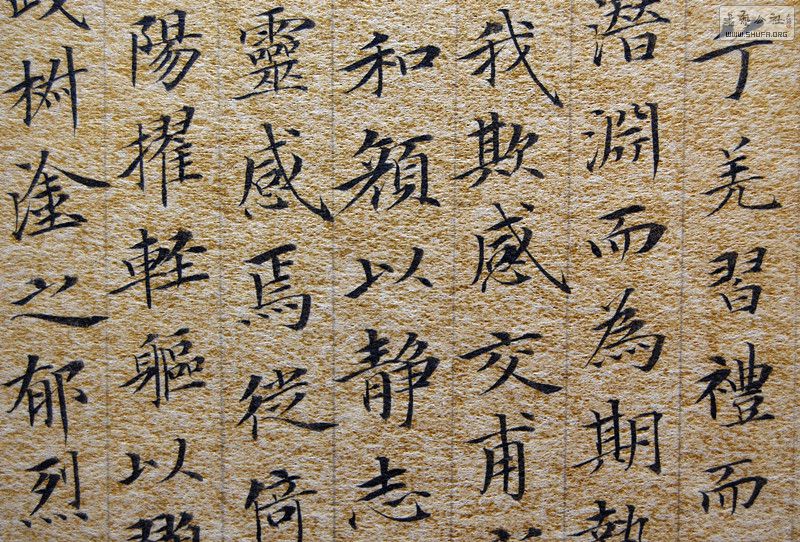 羌習禮而
潛淵而為期執
我欺感交甫
和顏以靜志
靈感焉徙倚
陽擢輕軀以
椒塗之郁烈
WWW.SHUFA.ORG